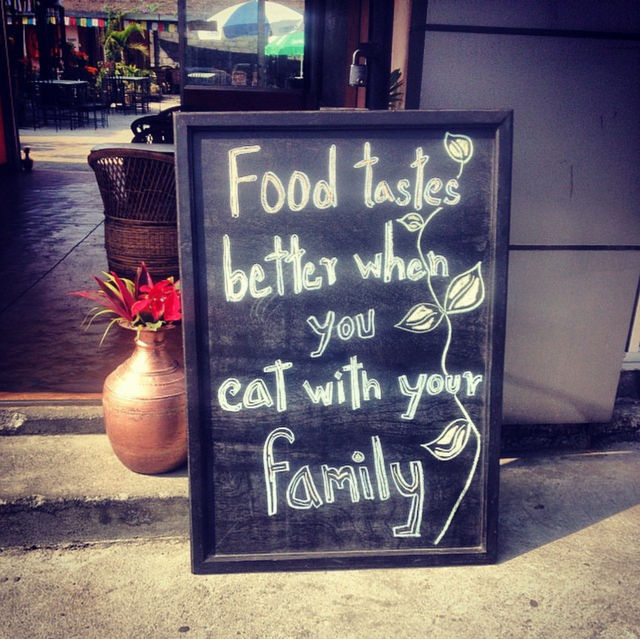 Food tastes
better when
you
eat with your
family